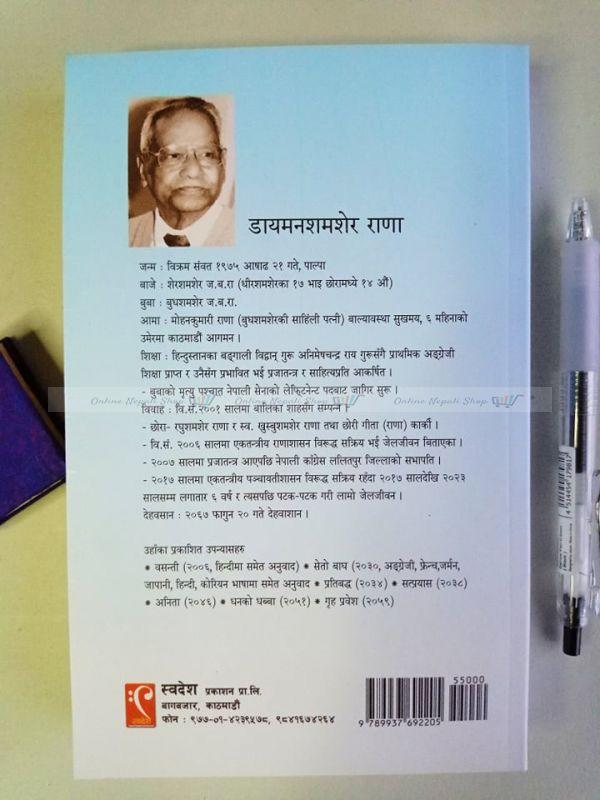 डायमनशमशेर राणा
जन्म : विक्रम संवत १९७५ आषाढ २१ गते, पाल्पा
बाजे : शेरशमशेर ज.ब.रा (धीरशमशेरका १७ भाइ छोरामध्ये १४ औं)
बुबा : बुधशमशेर ज.ब.रा.
आमा : मोहनकुमारी राणा (बुधशमशेरकी साहिंली पत्नी) बाल्यावस्था सुखमय, ६ महिनाको
उमेरमा काठमाडौं आगमन ।
शिक्षा : हिन्दुस्तानका बङ्गाली विद्वान् गुरू अनिमेषचन्द्र राय गुरूसंगै प्राथमिक अङ्ग्रेजी
शिक्षा प्राप्त र उनैसंग प्रभावित भई प्रजातन्त्र र साहित्यप्रति आकर्षित ।
- बुबाको मृत्यु पश्चात नेपाली सेनाको लेफ्टिनेन्ट पदबाट जागिर सुरू ।
Online Nepali Shop
Online Nepali Shop
Online Nepali Shop
विवाह : वि.सं.२००१ सालमा बालिका शाहसंग सम्पन्न ।
- छोरा- रघुशमशेर राणा र स्व. खुस्बुशमशेर राणा तथा छोरी गीता (राणा) कार्की ।
- वि.सं. २००६ सालमा एकतन्त्रीय राणाशासन विरूद्ध सक्रिय भई जेलजीवन बिताएका ।
- २००७ सालमा प्रजातन्त्र आएपछि नेपाली काँग्रेस ललितपुर जिल्लाको सभापति ।
- २०१७ सालमा एकतन्त्रीय पञ्चायतीशासन विरूद्ध सक्रिय रहँदा २०१७ सालदेखि २०२३
सालसम्म लगातार ६ वर्ष र त्यसपछि पटक-पटक गरी लामो जेलजीवन ।
देहवसान : २०६७ फागुन २० गते देहावशान ।
उहाँका प्रकाशित उपन्यासहरु
* वसन्ती (२००६, हिन्दीमा समेत अनुवाद) * सेतो बाघ (२०३०, अङ्ग्रेजी, फ्रेन्च,जर्मन,
जापानी, हिन्दी, कोरियन भाषामा समेत अनुवाद * प्रतिबद्ध (२०३४) * सत्प्रयास (२०३८)
* अनिता (२०४६) * धनको धब्बा (२०५१) * गृह प्रवेश (२०५९)
स्वदेश प्रकाशन प्रा.लि.
बागबजार, काठमाडौं
फोन : ९७७-०१-४२३९५७८, ९८४१६७४२६४
स्वदेश
55000
9 789937 692205
4 514454 179817